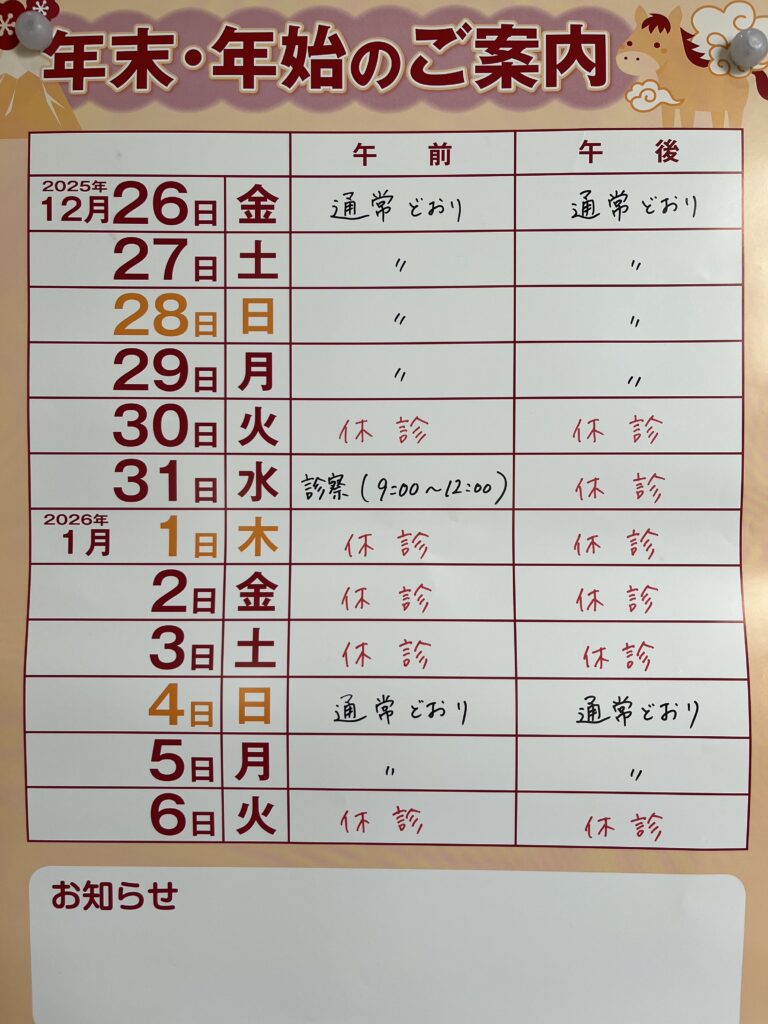 年末・年始のご案内
午前 午後
2025年
12月26日 金 通常どおり 通常どおり
27日 土 〃 〃
28日 日 〃 〃
29日 月 〃 〃
30日 火 休診 休診
31日 水 診察(9:00〜12:00) 休診
2026年
1月 1日 木 休診 休診
2日 金 休診 休診
3日 土 休診 休診
4日 日 通常どおり 通常どおり
5日 月 〃 〃
6日 火 休診 休診
お知らせ